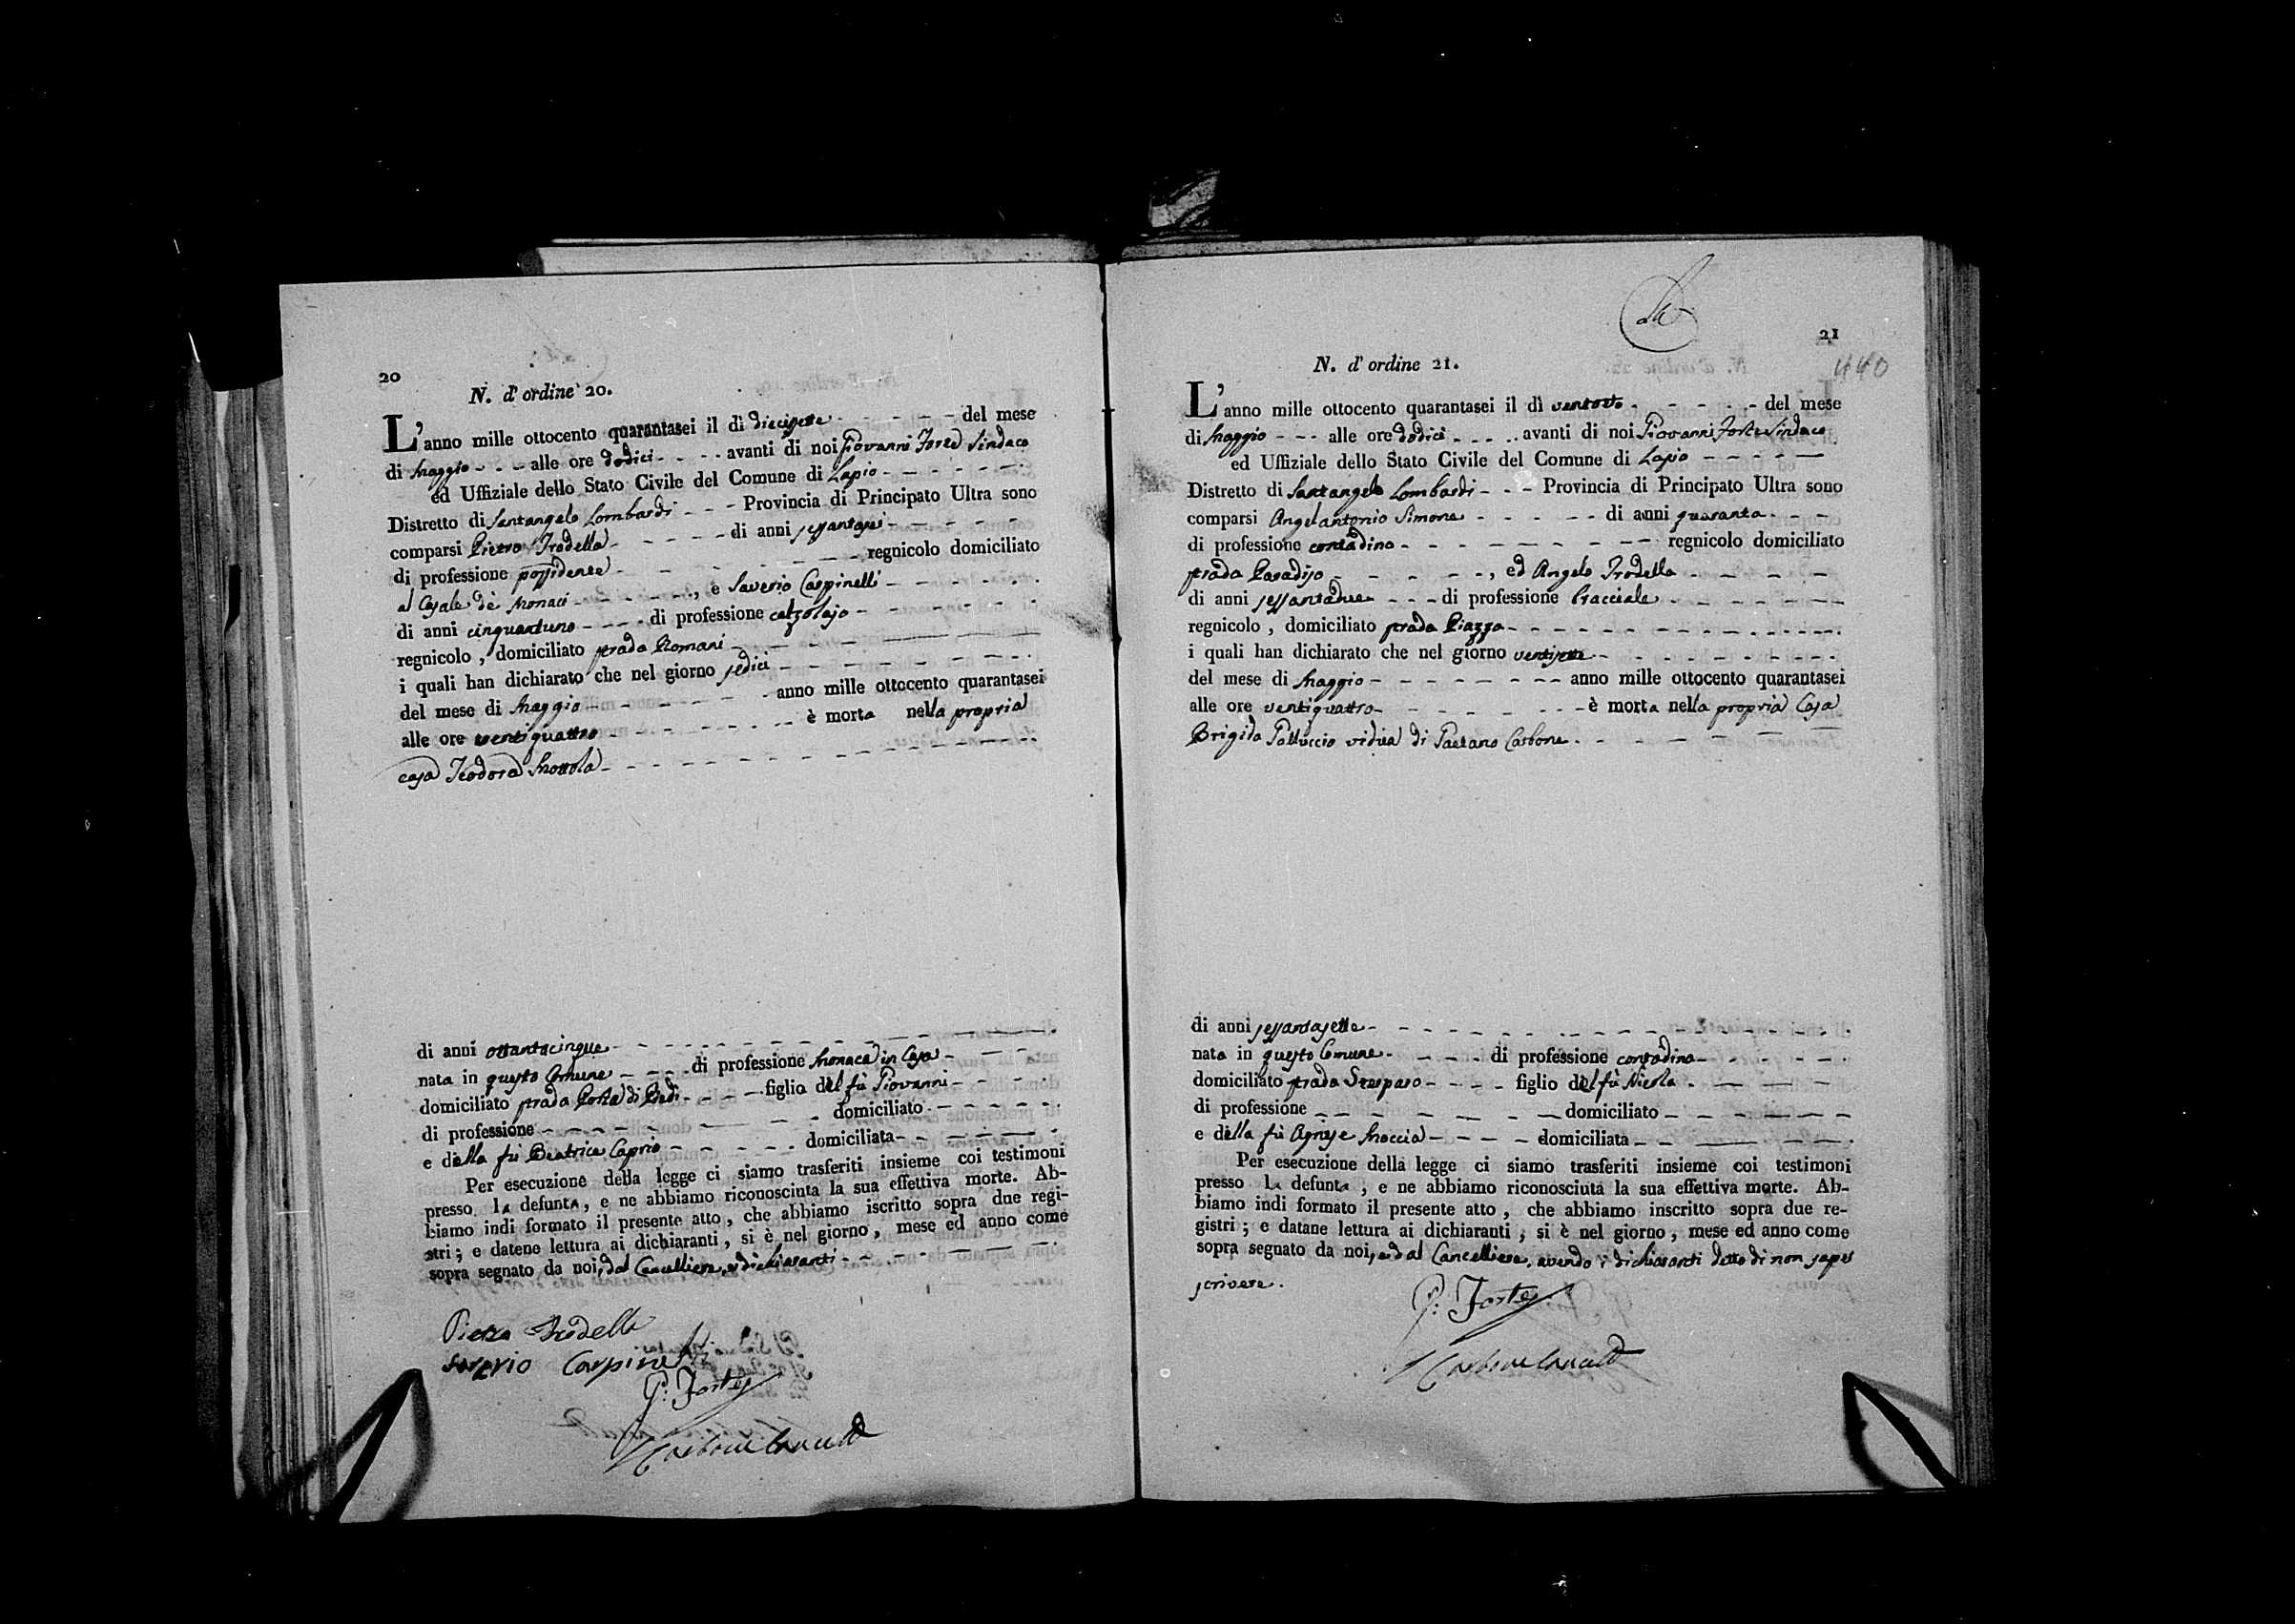 20
N. d'ordine 20.
L'anno mille ottocento quarantasei il dì diecisette del mese
di Maggio alle ore dodici avanti di noi Giovanni Forte Sindaco
ed Uffiziale dello Stato Civile del Comune di Lapio
Distretto di Santangelo Lombardi Provincia di Principato Ultra sono
comparsi Pietro Trodella di anni sessantasei
di professione possidente regnicolo domiciliato
al Casale de Monaci, e Saverio Carpinelli
di anni cinquantuno di professione calzolajo
regnicolo, domiciliato strada Romani
i quali han dichiarato che nel giorno sedici
del mese di Maggio anno mille ottocento quarantasei
alle ore ventiquattro è morta nella propria
casa Teodora Mottola
di anni ottantacinque
nata in questo Comune di professione Monaca in Casa
domiciliato strada Porta di Piedi figlio del fù Giovanni
di professione domiciliato
e della fù Beatrice Caprio domiciliata
Per esecuzione della legge ci siamo trasferiti insieme coi testimoni
presso la defunta, e ne abbiamo riconosciuta la sua effettiva morte. Ab-
biamo indi formato il presente atto, che abbiamo iscritto sopra due regi-
stri; e datene lettura ai dichiaranti, si è nel giorno, mese ed anno come
sopra segnato da noi, dal Cancelliere, e dichiaranti
Pietro Trodella
Saverio Carpinelli
G: Forte
Carbone Canc
21
440
N. d'ordine 21.
L'anno mille ottocento quarantasei il dì ventotto del mese
di Maggio alle ore dodici avanti di noi Giovanni Forte Sindaco
ed Uffiziale dello Stato Civile del Comune di Lapio
Distretto di Santangelo Lombardi Provincia di Principato Ultra sono
comparsi Angelantonio Simone di anni quaranta
di professione contadino regnicolo domiciliato
strada Paradiso, ed Angelo Trodella
di anni sessantadue di professione bracciale
regnicolo, domiciliato strada Piazza
i quali han dichiarato che nel giorno ventisette
del mese di Maggio anno mille ottocento quarantasei
alle ore ventiquattro è morta nella propria Casa
Brigida Galluccio vidua di Gaetano Carbone
di anni sessantasette
nata in questo Comune di professione contadina
domiciliato strada figlio del fù Nicola
di professione domiciliato
e della fù Agnese Moccia domiciliata
Per esecuzione della legge ci siamo trasferiti insieme coi testimoni
presso la defunta, e ne abbiamo riconosciuta la sua effettiva morte. Ab-
biamo indi formato il presente atto, che abbiamo inscritto sopra due re-
gistri; e datane lettura ai dichiaranti, si è nel giorno, mese ed anno come
sopra segnato da noi, e dal Cancelliere, avendo i dichiaranti detto di non saper
scrivere.
G: Forte
Carbone Canc